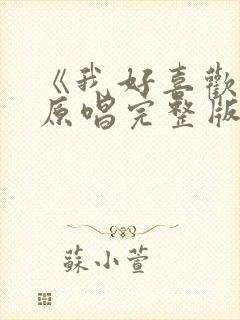 《我好喜歡
原唱完整版
蘇小萱